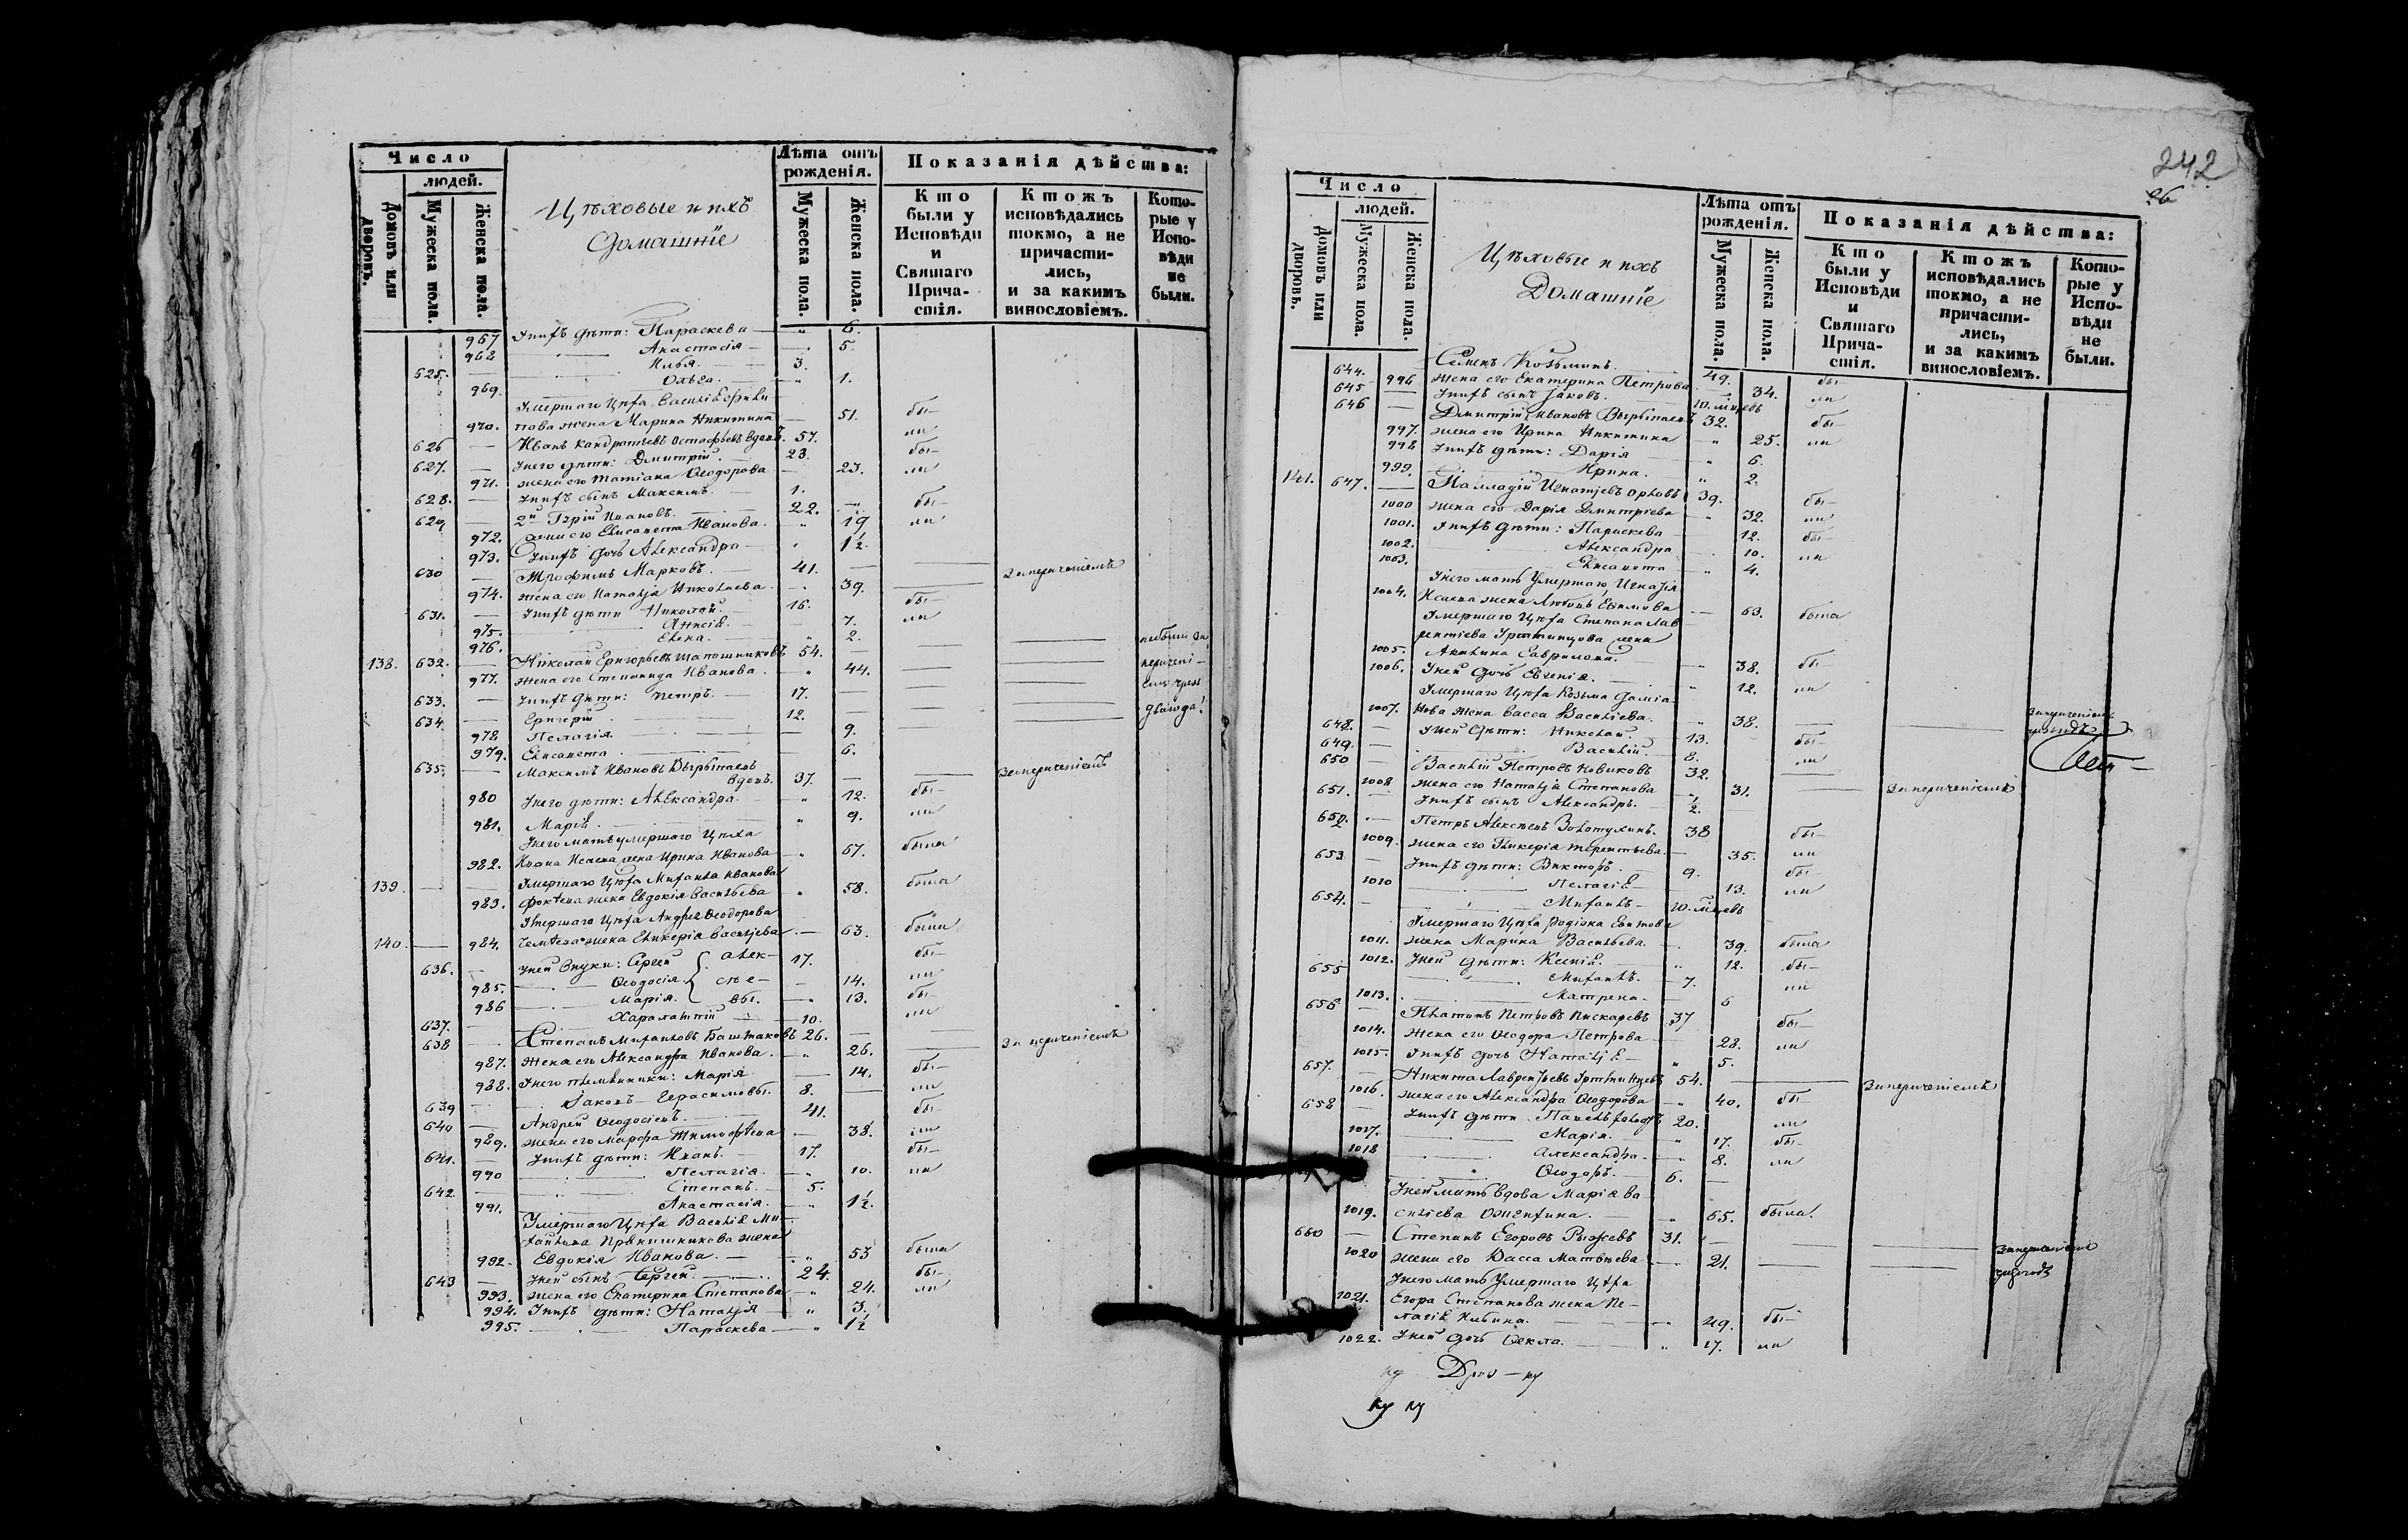 Число
людей.
Домовъ или дворовъ.
Мужеска пола.
Женска пола.
Цѣховые и ихъ
Домашніе
Лѣта отъ рожденія.
Мужеска пола.
Женска пола.
Показанія дѣйства:
Кто были у Исповѣди и Святаго Причастія.
Ктожъ исповѣдались токмо, а не причастились, и за какимъ винословіемъ.
Которые у Исповѣди не были.
967 У нихъ дѣти: Параскева — 6.
962 Анастасія — 5.
625. Илья. 3.
969. Ольга. 1.
Умершаго Цѣха Василія
970. жена Марина Никитина — 51. бы-
626 — Иванъ Кандратьевъ вдовъ. 57. ли
627. — У него дѣти: Дмитрій. 23. бы-
971. жена его Татіана Ѳеодорова — 23. ли
628. — У нихъ сынъ Максимъ. 1.
629 — 2й Гурій Ивановъ. 22. бы-
972. жена его Елисавета Иванова. 19 ли
973. У нихъ дочь Александра — 1½.
630 — Трофимъ Марковъ. 41. — за переченіемъ
974. жена его Наталья Николаева. 39.
631. — У нихъ дѣти Николай. 16. бы-
975. Анисія. 7. ли
976. Елена. 2.
138. 632. — Николай Григорьевъ Шапошниковъ 54.
977. жена его Степанида Иванова. 44.
633. — У нихъ дѣти: Петръ. 17.
634. Григорій 12.
978 Пелагія. 9.
979. Елисавета. 6.
635. — Максимъ Ивановъ Вырыпаевъ
вдовъ. 37. — за переченіемъ
980 У него дѣти: Александра. 12. бы-
981. Марія. 9. ли
У него мать умершаго Цѣха
982. Ивана Исаева жена Ирина Иванова 67. была
139. Умершаго Цѣха Михаила Иванова
983. жена Евдокія Васильева 58. была
Умершаго Цѣха Андрея Ѳеодорова
140. — 984. жена Гликерія Васильева. — 63. была
636. — У ней внуки: Сергей Алек- 17. бы-
985. Ѳеодосія. сѣе- 14. ли
986 Марія. вы. 13. бы-
637. Харалампій 10. ли
638 Степанъ Михаиловъ Башмаковъ 26. — за переченіемъ
987. жена его Александра Иванова. 26.
988. У него племянники: Марія 14. бы-
639 — Іаковъ Герасимовы. 8. ли
640 — Андрей Ѳеодосіевъ. 41. бы-
989. жена его Марфа Тимофѣева — 38. ли
641. — У нихъ дѣти: Иванъ. 17. бы-
990 Пелагія. 10. ли
642. Степанъ. 5.
991. Анастасія. 1½.
Умершаго Цѣха Василія Ми-
хайлова жена
992. Евдокія Иванова. — 53 была
643 — У ней сынъ Сергей. 24. бы-
993. жена его Екатерина Степанова 24. ли
994. У нихъ дѣти: Наталья — 3.
995. Параскева — 1½
242
Число
людей.
Домовъ или дворовъ.
Мужеска пола.
Женска пола.
Цѣховые и ихъ
Домашніе
Лѣта отъ рожденія.
Мужеска пола.
Женска пола.
Показанія дѣйства:
Кто были у Исповѣди и Святаго Причастія.
Ктожъ исповѣдались токмо, а не причастились, и за какимъ винословіемъ.
Которые у Исповѣди не были.
644. Семенъ Козьминъ. 49. бы-
996 жена его Екатерина Петрова 34. ли
645 — У нихъ сынъ Іаковъ. 10. мцевъ
646 — Дмитрій Ивановъ Вырыпаевъ 32. бы-
997. жена его Ирина Никитина 25. ли
998 У нихъ дѣти: Дарія 6.
999. Ирина. 2.
141. 647. — Палладій Игнатьевъ Орловъ 39. бы-
1000 жена его Дарія Дмитріева 32. ли
1001. У нихъ дѣти: Параскева 12. бы-
1002. Александра 10. ли
1003. Елисавета 4.
У него мать умершаго Игнатія
1004. Исаева жена Любовь Ефимова — 63. была
Умершаго Цѣха Степана Лав-
рентіева жена
1005. Акилина Гаврилова. 38. бы-
1006. У ней дочь Евгенія. 12. ли
Умершаго Цѣха Козьмы Даміа-
1007. нова жена Васса Васильева. 38. — за переченіемъ
648. — У ней дѣти: Николай. 13. бы-
649. — Василій. 8. ли
650 — Василій Петровъ Новиковъ 32. —
1008 жена его Наталья Степанова 31. — за переченіемъ
651. — У нихъ сынъ Александръ. ½.
652. — Петръ Алексѣевъ Золотухинъ. 38 бы-
1009. жена его Гликерія Терентьева. 35. ли
653 — У нихъ дѣти: Викторъ. 9. бы-
1010 Пелагія 13. ли
654. — Михаилъ — 10. мцевъ
Умершаго Цѣха Родіона
1011. жена Марина Васильева. 39. была
1012. У ней дѣти: Ксенія. 12. бы-
655 Михаилъ. 7. ли
1013. Матрена. 6
656 — Платонъ Петровъ Пискаревъ 37 бы-
1014. жена его Ѳеодора Петрова 28. ли
1015. У нихъ дочь Наталья — 5.
657. — Никита Лаврентьевъ 54. — за переченіемъ
1016. жена его Александра Ѳеодорова 40. бы-
658 — У нихъ дѣти: Павелъ 20. ли
1017. Марія. 17. бы-
1018 Александра. 8. ли
Ѳеодоръ. 6. —
У ней мать вдова Марія Ва-
1019. сильева 65. была.
660 — Степанъ Егоровъ Рыжевъ 31. —
1020 жена его Васса Матвѣева 21. — за переченіемъ
У него мать умершаго Цѣха
1021. Егора Степанова жена Пе-
лагія Ильина. 49. бы-
1022. У ней дочь Ѳекла. 17. ли